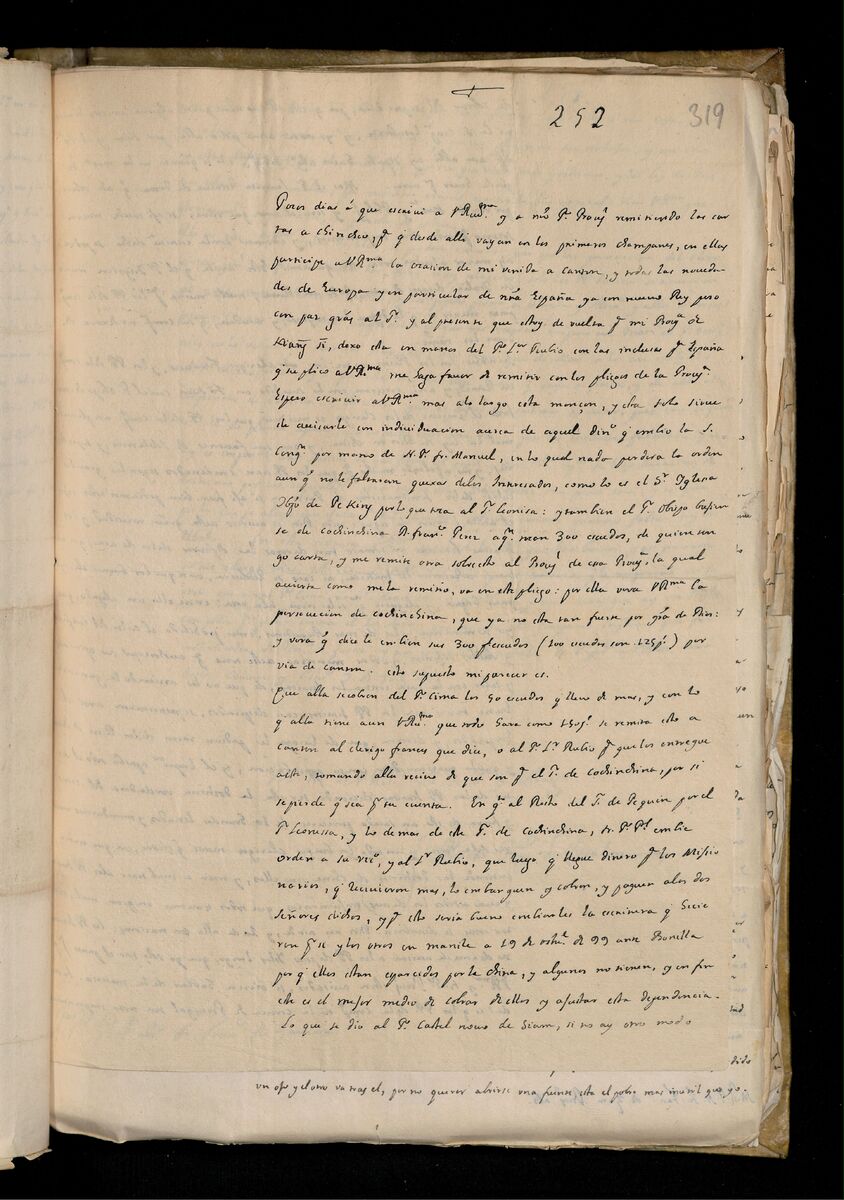 252
319
Pocos dias á que escriui a VRma. y a nro Pe. Prouāl remitiendo las car
tas a chincheo, pa q̃ desde alli vayan en los primeros champanes, en ellas
participè a VRma la ocasion de mi venida a canton, y todas las noueda
des de Europa y en particular de nra España ya con nueuo Rey pero
con paz grãs al Sr. y al presente que estoy de vuelta pa mi Prouā de
Kiang Si, dexo esta en manos del Pe. Lor Rubio con las inclusas pa España
q̃ suplico a VRma me haga fauor de remitir con los pliegos de la Prouā.
Espero escriuir a VRma. mas a lo largo esta monçon, y esta solo sirue
de auisarle con indiuiduacion acerca de aquel dino q̃ embio la S.
Congn por mano de N. Pe. fr. Manuel, en lo qual nada perdera la orden
aunq̃ no le faltaran quexas de los Interesados, como lo es el Sr. Iglesia
Obpo de Peking por lo que toca al Pe Leonisa: y tambien el Sr. Obispo
se de cochinchina D. franco Perez a qn. tocan 300 escudos, de quien ten
go carta, y me remite otra sobre esto al Prouāl de esa Prouā, la qual
abierta como me la remitio, va en este pliego: por ella vera VRma la
persecucion de cochinchina, que ya no esta tan fuerte por grã de Dios:
y vera q̃ dice le embien sus 300 escudos (100 escudos son 125 ps.) por
via de canton. esto supuesto mi parecer es.
Que alla se cobren del Pe Cima los 50 escudos q̃ lleuo de mas, y con lo
q̃ alla tiene aun VRma. que todo hara como 150 ps. se remita esto a
canton al clerigo frances que dice, o al Pe. Lor Rubio pa que los entregue
a este, tomando alla reciuo de que son pa el Sr. de Cochinchina, por si
se pierde q̃ sea pr su cuenta. En qto al Resto del Sr. de Pequin por el
Pe Leonissa, y lo demas de este Sr. de Cochinchina, N. Pe. Pl embie
orden a su vico. y al Lor Rubio, que luego q̃ llegue dinero pa los Missio
narios, q̃ reciuieron mas, lo embarguen y cobren, y paguen a los dos
señores dichos, y pa esto seria bueno embiarles la escritura q̃ hicie
ron y los otros en manila a 19 de octre. de 99 ante Bonilla
porq̃ ellos estan esparcidos por la china, y algunos no tienen, y en fin
este es el mejor medio de cobrar de ellos y ajustar esta dependencia.
Lo que se dio al Pe. Castel nouo de Siam, si no ay otro modo
un ojo y el otro va tras el, por no querer abrirse una fuente esta el pobre mas inutil que yo.